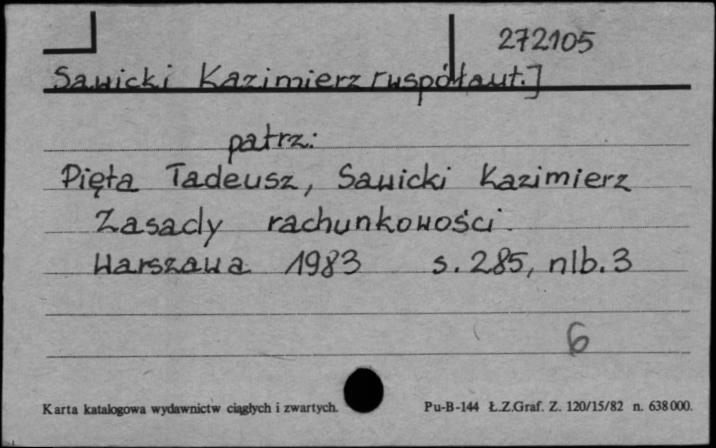 272105
Sawicki Kazimierz [współaut.]
patrz:
Pięta Tadeusz, Sawicki Kazimierz
Zasady rachunkowości.
Warszawa 1983 s. 285, nlb. 3
6
Karta katalogowa wydawnictw ciągłych i zwartych. Pu-B-144 Ł.Z.Graf. Z. 120/15/82 n. 638000.